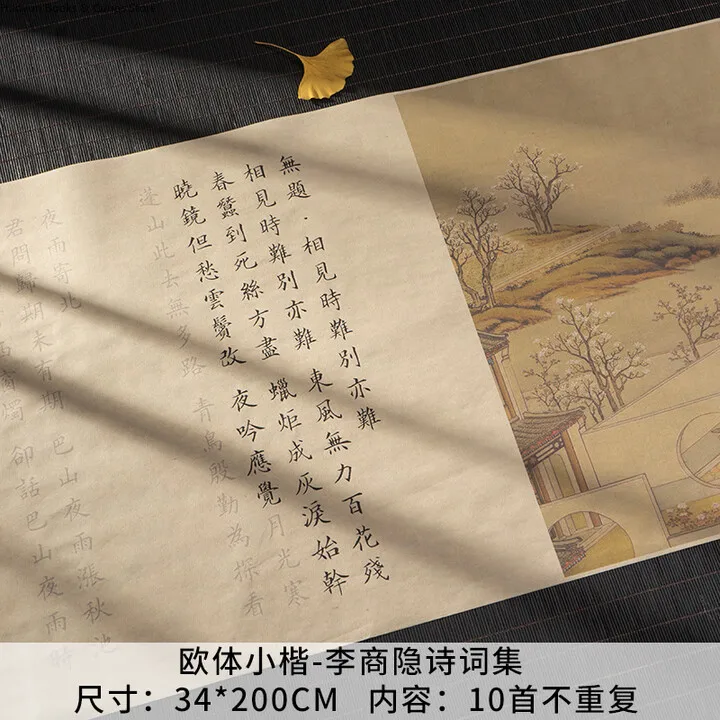 無題·相見時難別亦難
相見時難別亦難 東風無力百花殘
春蠶到死絲方盡 蠟炬成灰淚始幹
曉鏡但愁雲鬢改 夜吟應覺月光寒
蓬山此去無多路 青鳥殷勤為探看
夜雨寄北
君問歸期未有期 巴山夜雨漲秋池
窗燭 卻話巴山夜雨時
欧体小楷-李商隐诗词集
尺寸：34*200CM 内容：10首不重复